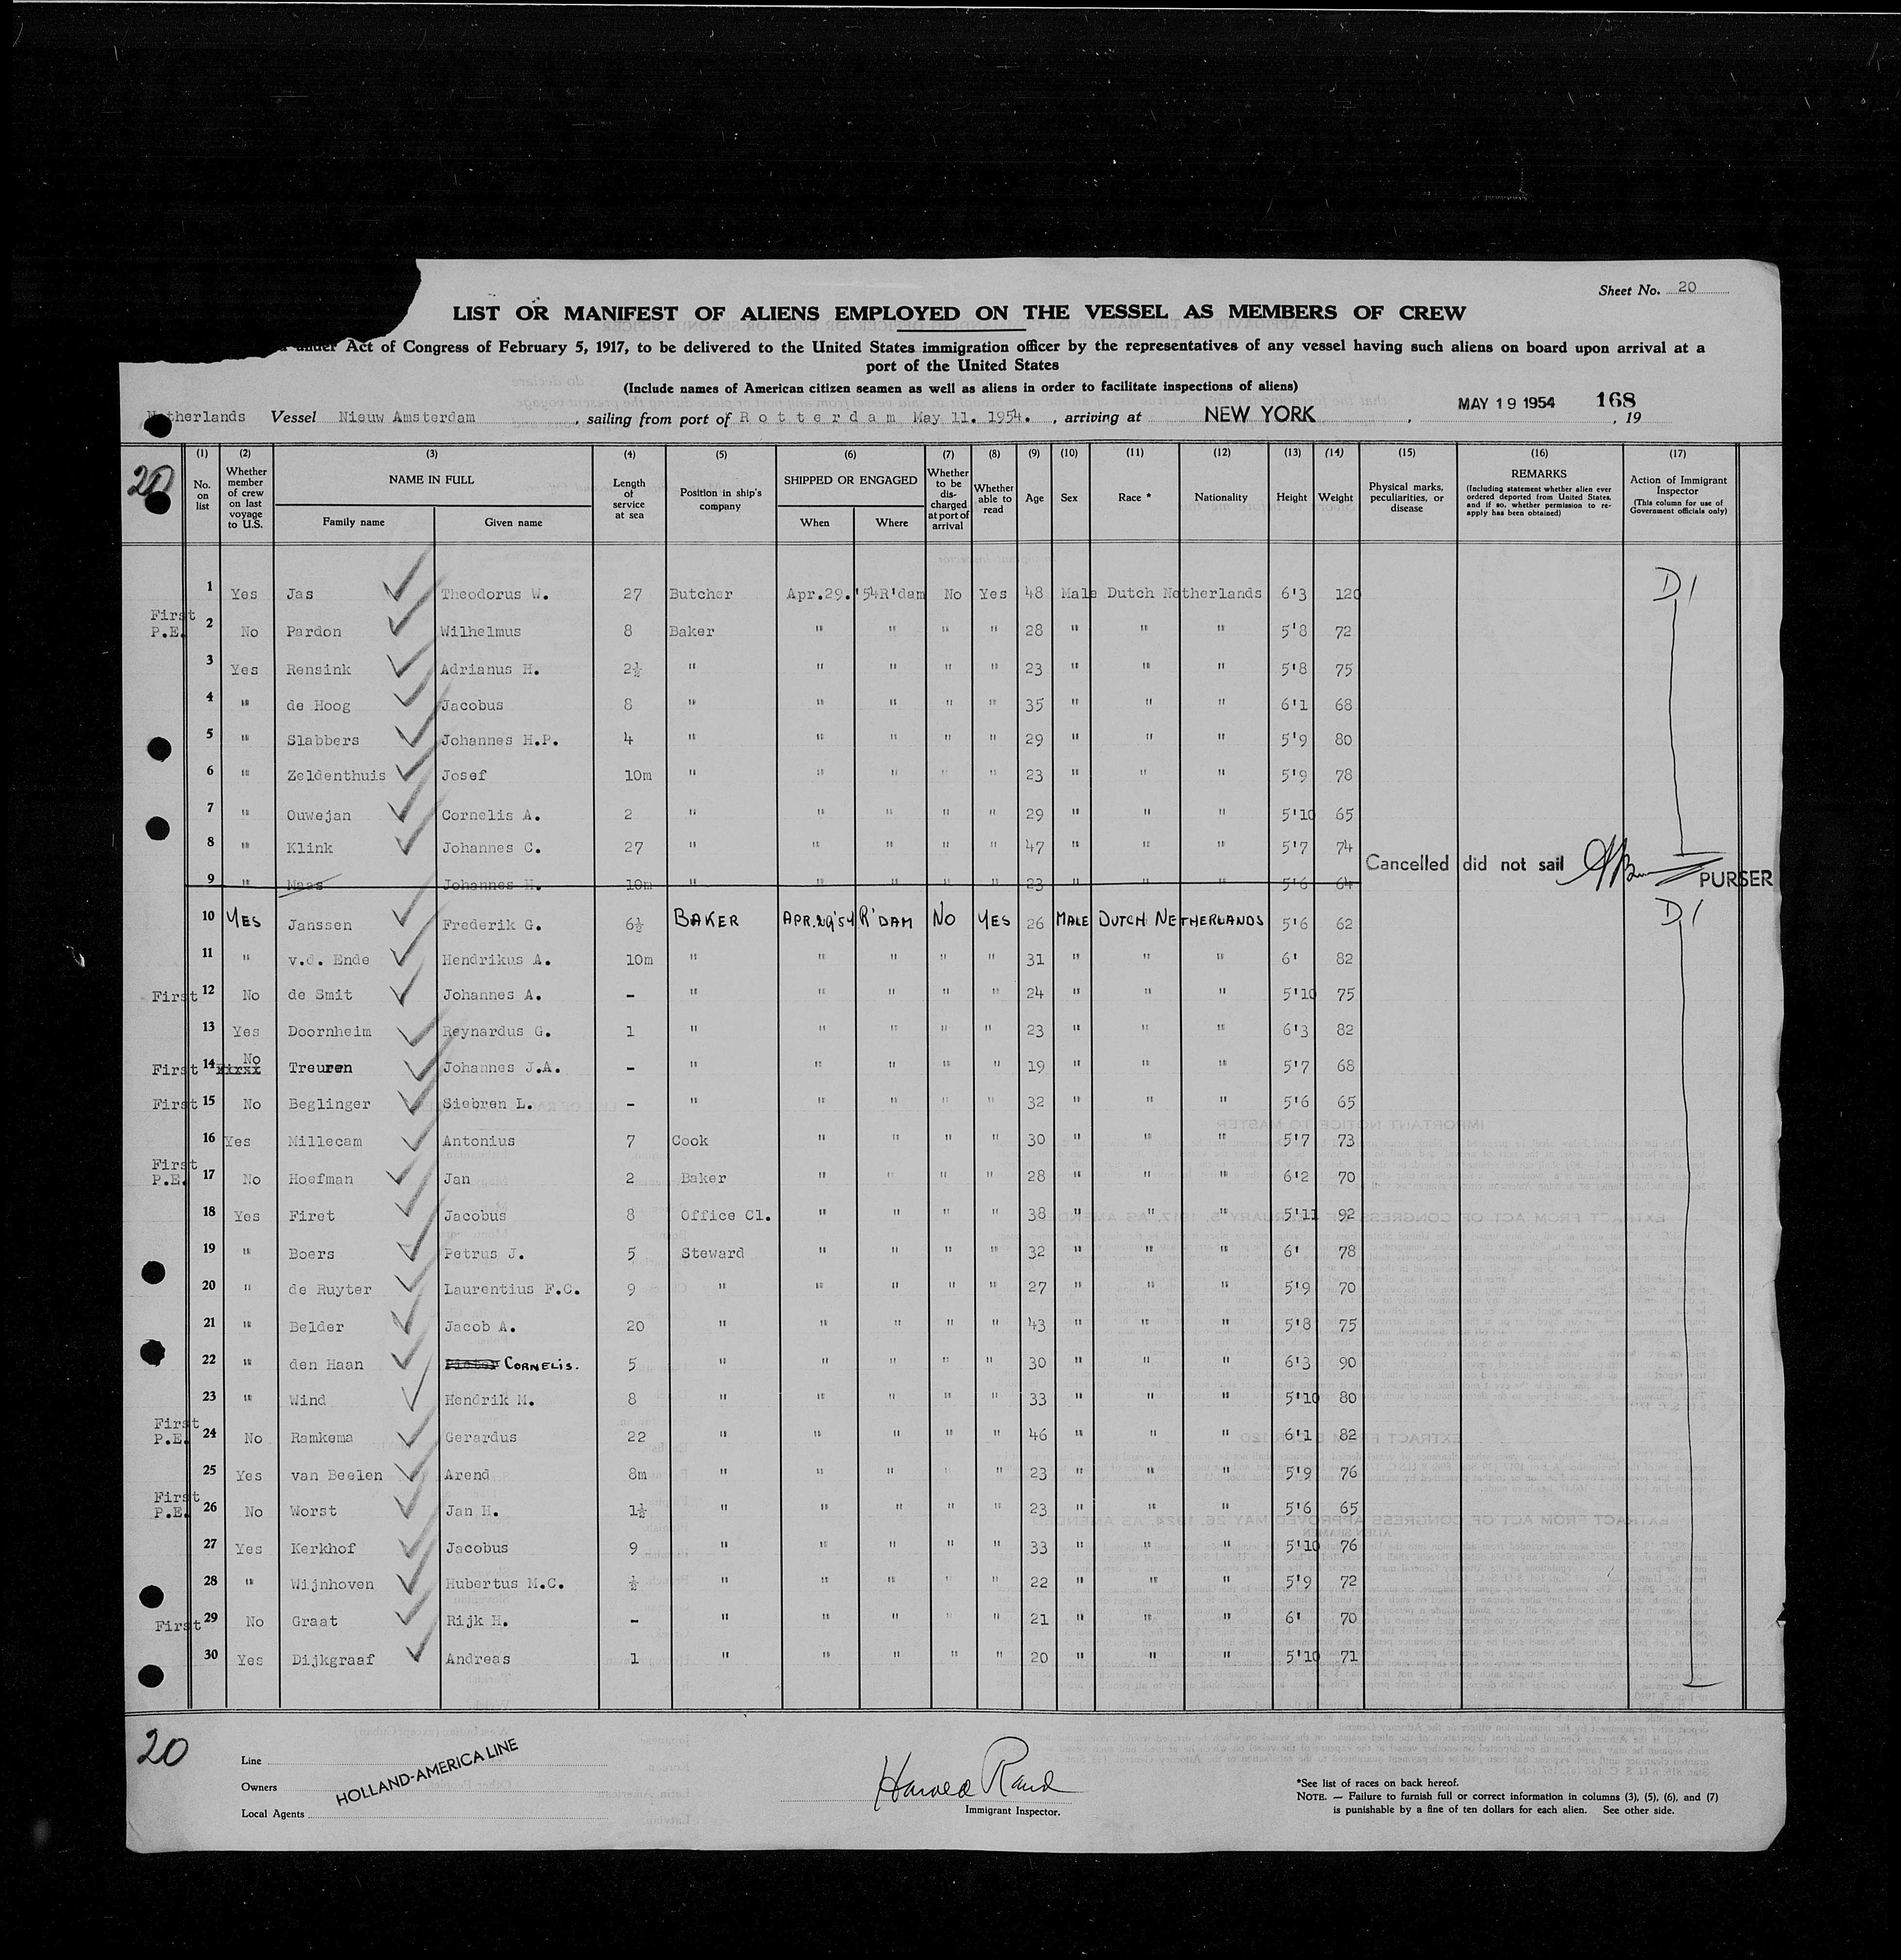 Sheet No. 20
LIST OR MANIFEST OF ALIENS EMPLOYED ON THE VESSEL AS MEMBERS OF CREW
under Act of Congress of February 5, 1917, to be delivered to the United States immigration officer by the representatives of any vessel having such aliens on board upon arrival at a
port of the United States
(Include names of American citizen seamen as well as aliens in order to facilitate inspections of aliens)
Netherlands Vessel Nieuw Amsterdam, sailing from port of Rotterdam May 11. 1954., arriving at NEW YORK, MAY 19 1954 168, 19
20
(1) No. on list (2) Whether member of crew on last voyage to U.S. (3) NAME IN FULL Family name Given name (4) Length of service at sea (5) Position in ship's company (6) SHIPPED OR ENGAGED When Where (7) Whether to be discharged at port of arrival (8) Whether able to read (9) Age (10) Sex (11) Race * (12) Nationality (13) Height (14) Weight (15) Physical marks, peculiarities, or disease (16) REMARKS (Including statement whether alien ever ordered deported from United States, and if so, whether permission to re-apply has been obtained) (17) Action of Immigrant Inspector (This column for use of Government officials only)
1 Yes Jas Theodorus W. 27 Butcher Apr.29.'54 R'dam No Yes 48 Male Dutch Netherlands 6'3 120 D1
First P.E. 2 No Pardon Wilhelmus 8 Baker " " " " 28 " " " 5'8 72
3 Yes Rensink Adrianus H. 2½ " " " " " 23 " " " 5'8 75
4 " de Hoog Jacobus 8 " " " " " 35 " " " 6'1 68
5 " Slabbers Johannes H.P. 4 " " " " " 29 " " " 5'9 80
6 " Zeldenthuis Josef 10m " " " " " 23 " " " 5'9 78
7 " Ouwejan Cornelis A. 2 " " " " " 29 " " " 5'10 65
8 " Klink Johannes C. 27 " " " " " 47 " " " 5'7 74
9 " Maas Johannes H. 10m " " " " " 23 " " " 5'6 64 Cancelled did not sail PURSER
10 YES Janssen Frederik G. 6½ BAKER APR.29'54 R'DAM NO YES 26 MALE DUTCH NETHERLANDS 5'6 62 D1
11 " v.d. Ende Hendrikus A. 10m " " " " " 31 " " " 6' 82
First 12 No de Smit Johannes A. - " " " " " 24 " " " 5'10 75
13 Yes Doornheim Reynardus G. 1 " " " " " 23 " " " 6'3 82
First 14 No Treuren Johannes J.A. - " " " " " 19 " " " 5'7 68
First 15 No Beglinger Siebren L. - " " " " " 32 " " " 5'6 65
16 Yes Millecam Antonius 7 Cook " " " " 30 " " " 5'7 73
First P.E. 17 No Hoefman Jan 2 Baker " " " " 28 " " " 6'2 70
18 Yes Firet Jacobus 8 Office Cl. " " " " 38 " " " 5'11 92
19 " Boers Petrus J. 5 Steward " " " " 32 " " " 6' 78
20 " de Ruyter Laurentius F.C. 9 " " " " " 27 " " " 5'9 70
21 " Belder Jacob A. 20 " " " " " 43 " " " 5'8 75
22 " den Haan Pieter CORNELIS. 5 " " " " " 30 " " " 6'3 90
23 " Wind Hendrik M. 8 " " " " " 33 " " " 5'10 80
First P.E. 24 No Ramkema Gerardus 22 " " " " " 46 " " " 6'1 82
25 Yes van Beelen Arend 8m " " " " " 23 " " " 5'9 76
First P.E. 26 No Worst Jan H. 1½ " " " " " 23 " " " 5'6 65
27 Yes Kerkhof Jacobus 9 " " " " " 33 " " " 5'10 76
28 " Wijnhoven Hubertus M.C. ½ " " " " " 22 " " " 5'9 72
First 29 No Graat Rijk H. - " " " " " 21 " " " 6' 70
30 Yes Dijkgraaf Andreas 1 " " " " " 20 " " " 5'10 71
20
Line
Owners HOLLAND-AMERICA LINE
Local Agents
Harold Rand
Immigrant Inspector.
*See list of races on back hereof.
NOTE. — Failure to furnish full or correct information in columns (3), (5), (6), and (7)
is punishable by a fine of ten dollars for each alien. See other side.